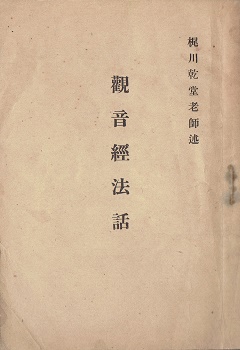 梶川乾堂老師述
觀音經法話